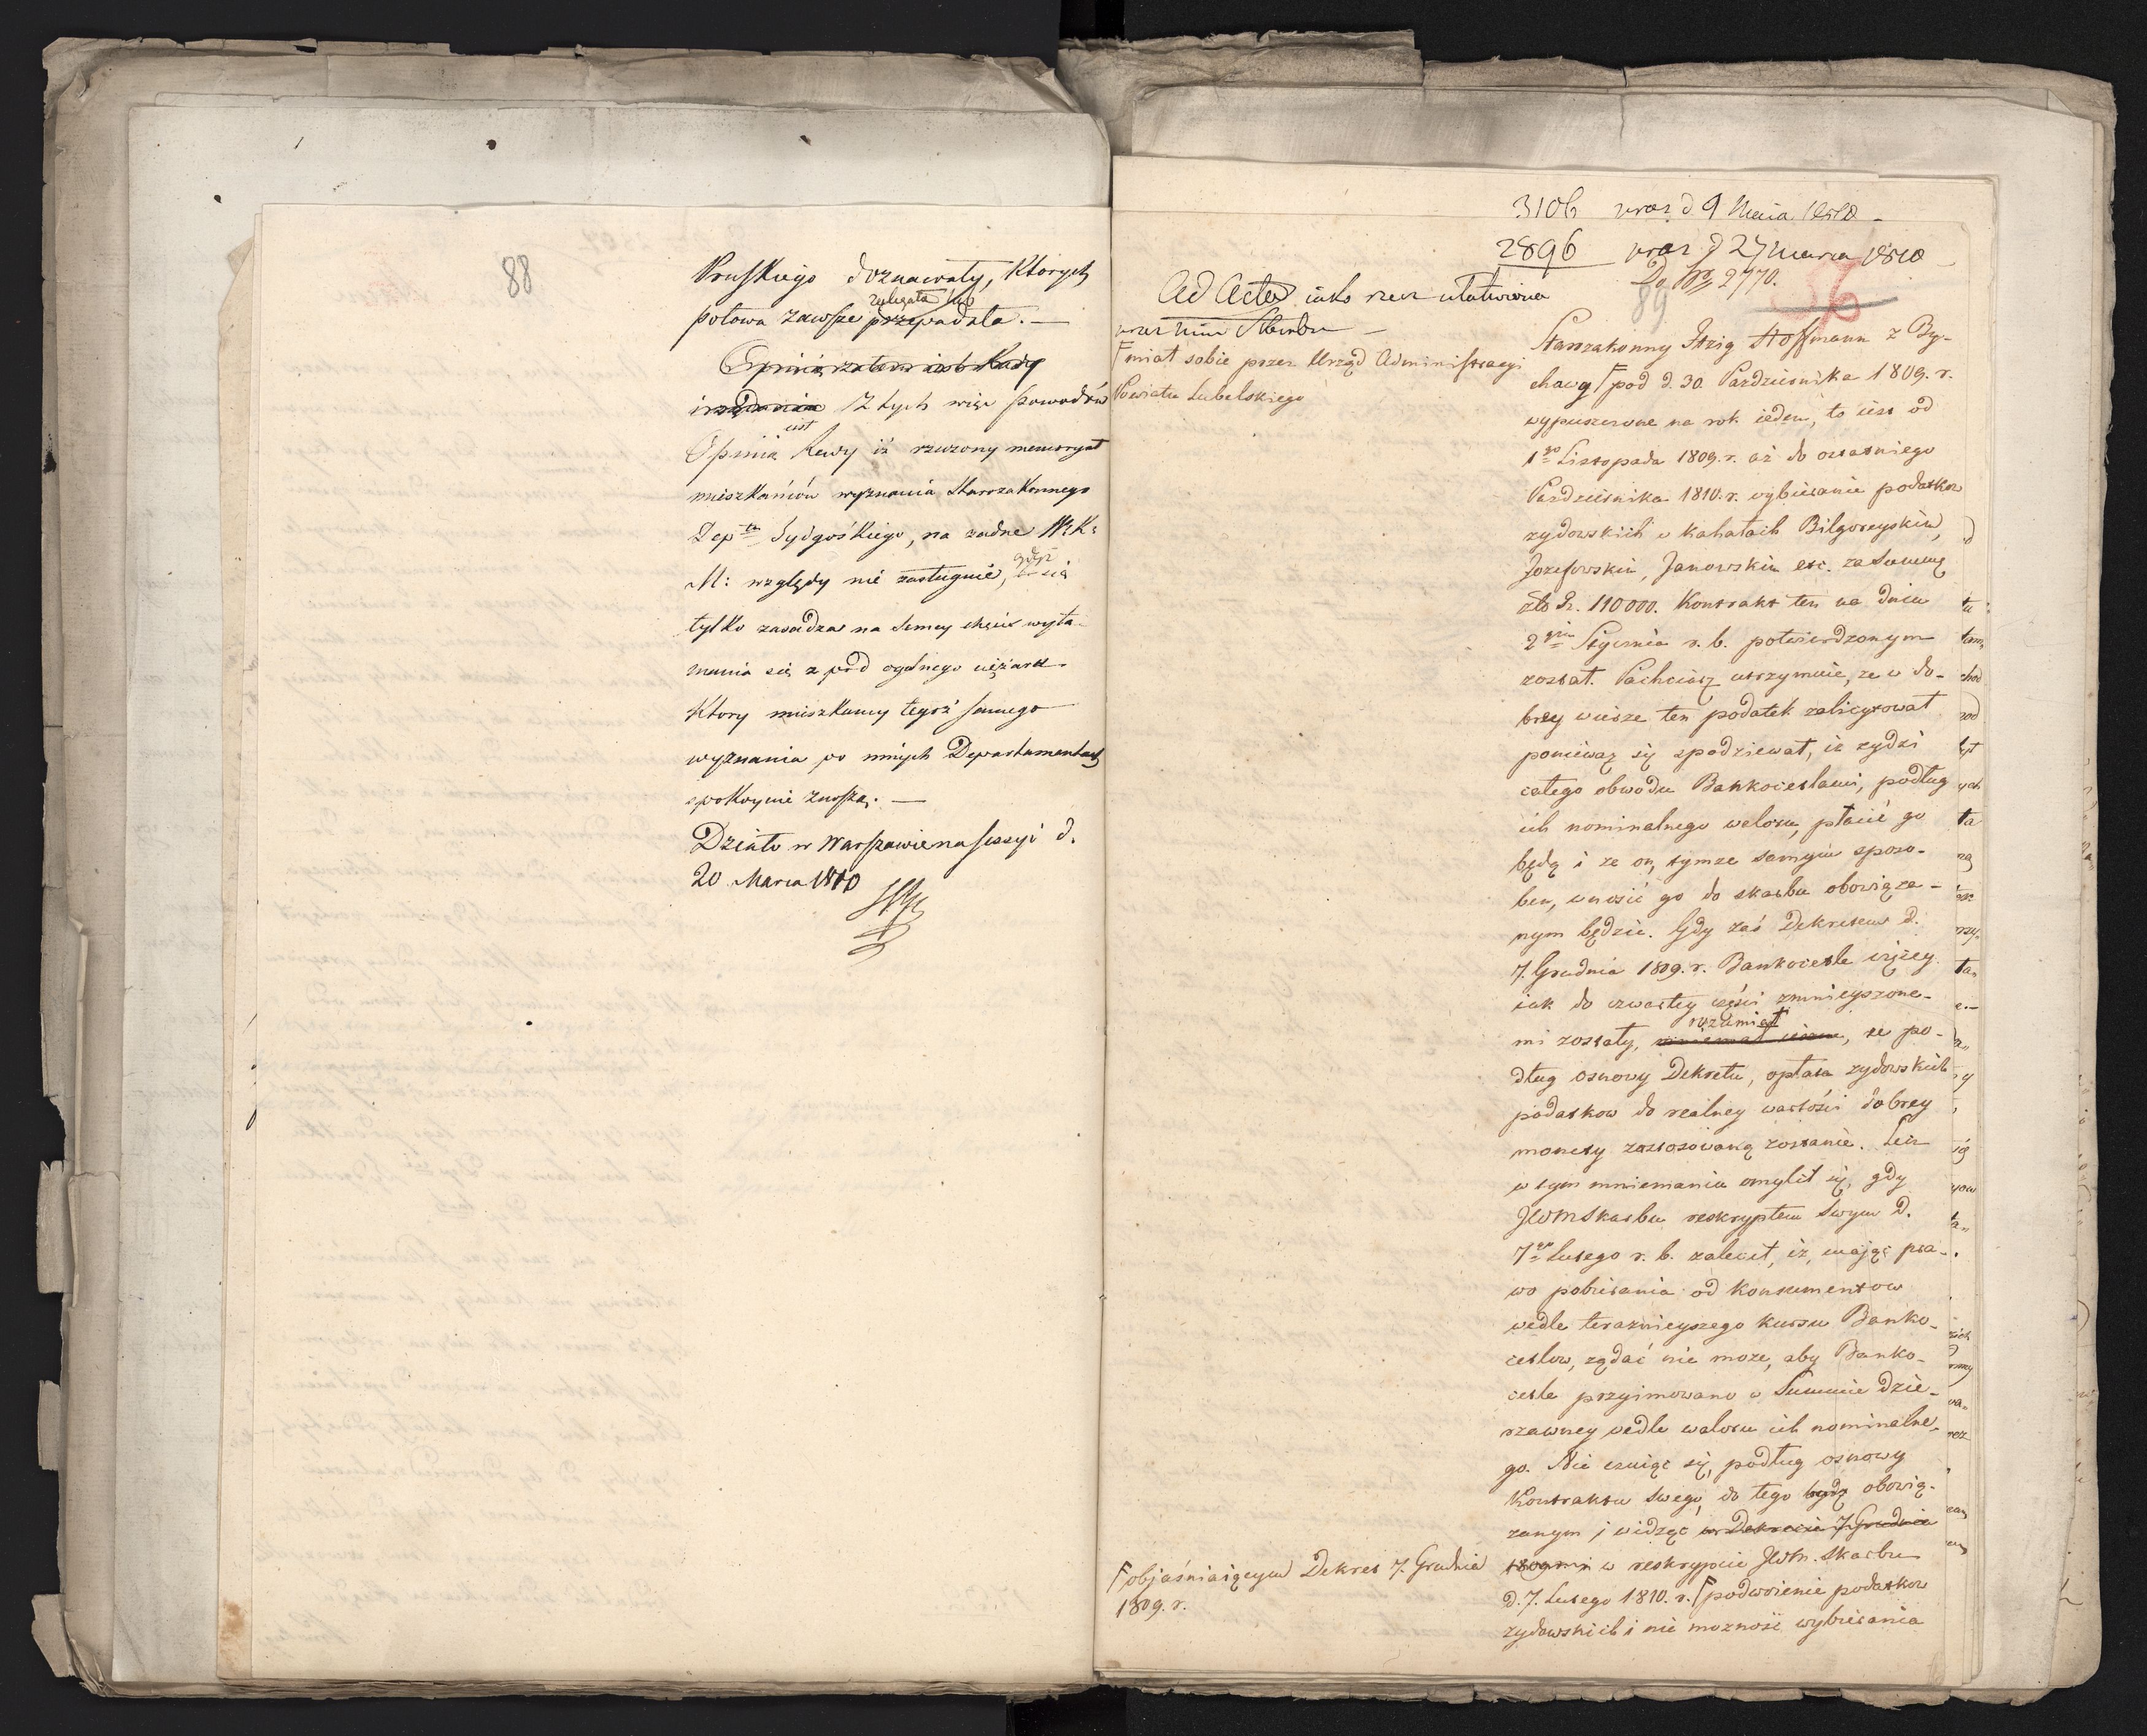 88
Pruskiego doznawały, których
zalegała lub
połowa zawsze przepadała. —
Opinią zatem iest Rady
Z tych więc powodów
iest
Opinią Rady iż rzeczony memoryał
mieszkańców wyznania Starozakonnego
Depttu Bydgoskiego, na żadne W: K:
M: względy nie zasługuie, gdyż
tylko zasadza na samey chęci wyła-
mania się z pod ogolnego ciężaru
ktory mieszkancy tegoż samego
wyznania po innych Departamentach
spokoynie znoszą. —
Działo w Warszawie na sessyi d.
20 Marca 1810
3106 wraz d 9 Maia 1810 -
2896 wraz d 27 marca 1810
Do Nr 2770.
89
36
Ad Acta iako rzecz ułatwiona
miał sobie przez Urząd Administracyi
Powiatu Lubelskiego
Starozakonny Itzig Hoffmann z By-
chawy pod d. 30 Pazdziernika 1809. r.
wypuszczone na rok ieden, to iest od
1go Listopada 1809. r. aż do ostatniego
Pazdziernika 1810. r. wybieranie podatkow
zydowskich w kahałach Bilgoreyskim,
Jozefowskim, Janowskim etc. za Summę
złto R. 110000. Kontrakt ten na dniu
2gim Stycznia r. b. potwierdzonym
został. Pachciarz utrzymuie, że w do-
brey wierze ten podatek zalicytował
ponieważ się spodziewał, iż zydzi
całego obwodu Bankocetlami, podług
ich nominalnego waloru, płacić go
będą i że on, tymże samym sposo-
bem, wnosić go do skarbu obowiąza-
nym będzie. Gdy zaś Dekretem d.
7. Grudnia 1809. r. Bankocetle więcey
iak do czwartey części zmnieyszone-
rozumiał
mi zostały, , że po-
dług osnowy Dekretu, opłata zydowskich
podatkow do realney wartości dobrey
monety zastosowaną zostanie. Lecz
w tym mniemaniu omylił się, gdy
JWM Skarbu reskryptem swym d.
7go Lutego r. b. zalecił, iż, mając pra-
wo pobierania od konsumentow
wedle teraznieyszego kursu Banko-
cetlow, żądać nie może, aby Banko-
cetle przyimowano w Summie dzie-
rzawney wedle waloru ich nominalne-
go. Nie czuiąc się, podług osnowy
Kontraktu swego, do tego bydź obowią-
zanym i widząc w Dekrecie 7. Grudnia
1809 w reskrypcie JWM. Skarbu
d. 7. Lutego 1810. r. podwoienie podatkow
zydowskich i nie możność wybierania
objaśniaiącym Dekret 7. Grudnia
1809. r.